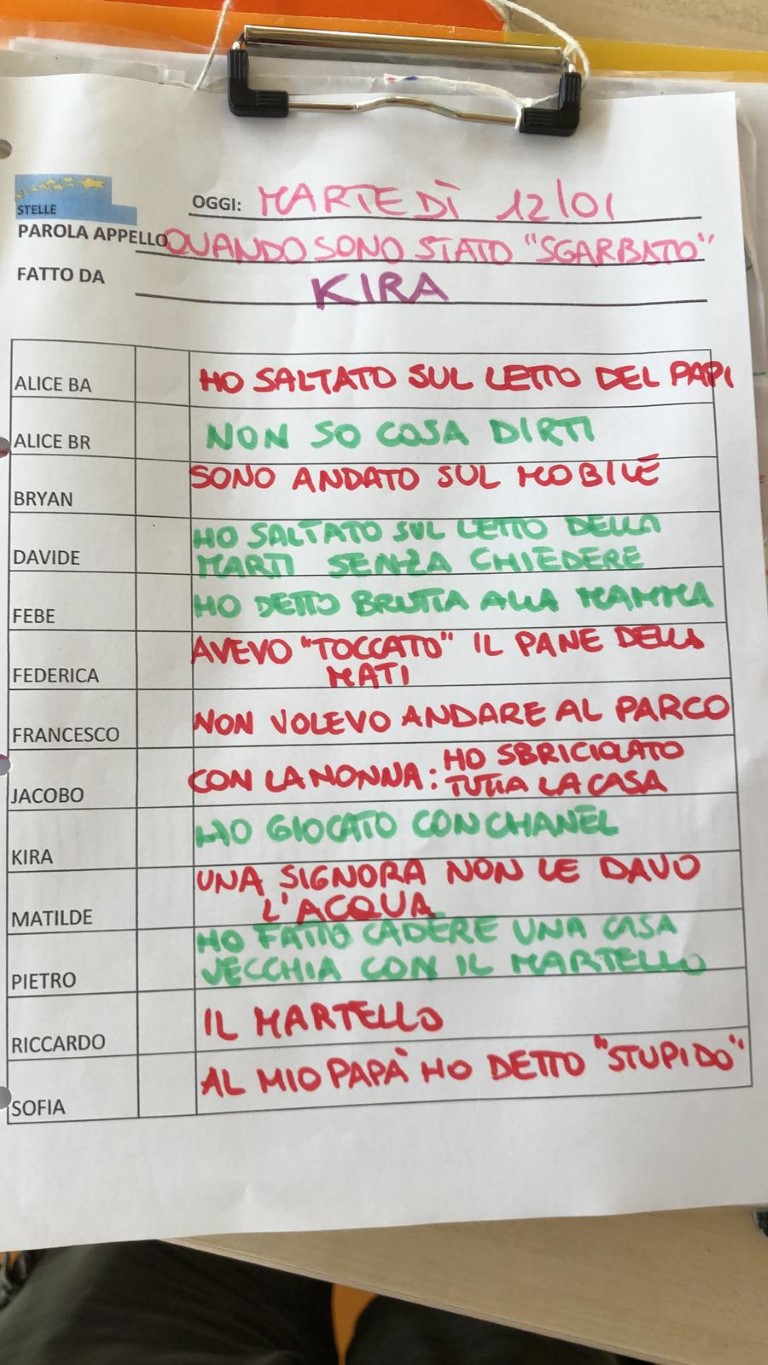 STELLE
OGGI: MARTEDÌ 12/01
PAROLA APPELLO QUANDO SONO STATO "SGARBATO"
FATTO DA KIRA
ALICE BA HO SALTATO SUL LETTO DEL PAPI
ALICE BR NON SO COSA DIRTI
BRYAN SONO ANDATO SUL MOBILE
DAVIDE HO SALTATO SUL LETTO DELLA
MARTI SENZA CHIEDERE
FEBE HO DETTO BRUTTA ALLA MAMMA
FEDERICA AVEVO "TOCCATO" IL PANE DELLA
MATI
FRANCESCO NON VOLEVO ANDARE AL PARCO
JACOBO CON LA NONNA: HO SBRICIOLATO
TUTTA LA CASA
KIRA HO GIOCATO CON CHANEL
MATILDE UNA SIGNORA NON LE DAVO
L'ACQUA
PIETRO HO FATTO CADERE UNA CASA
VECCHIA CON IL MARTELLO
RICCARDO IL MARTELLO
SOFIA AL MIO PAPÀ HO DETTO "STUPIDO"